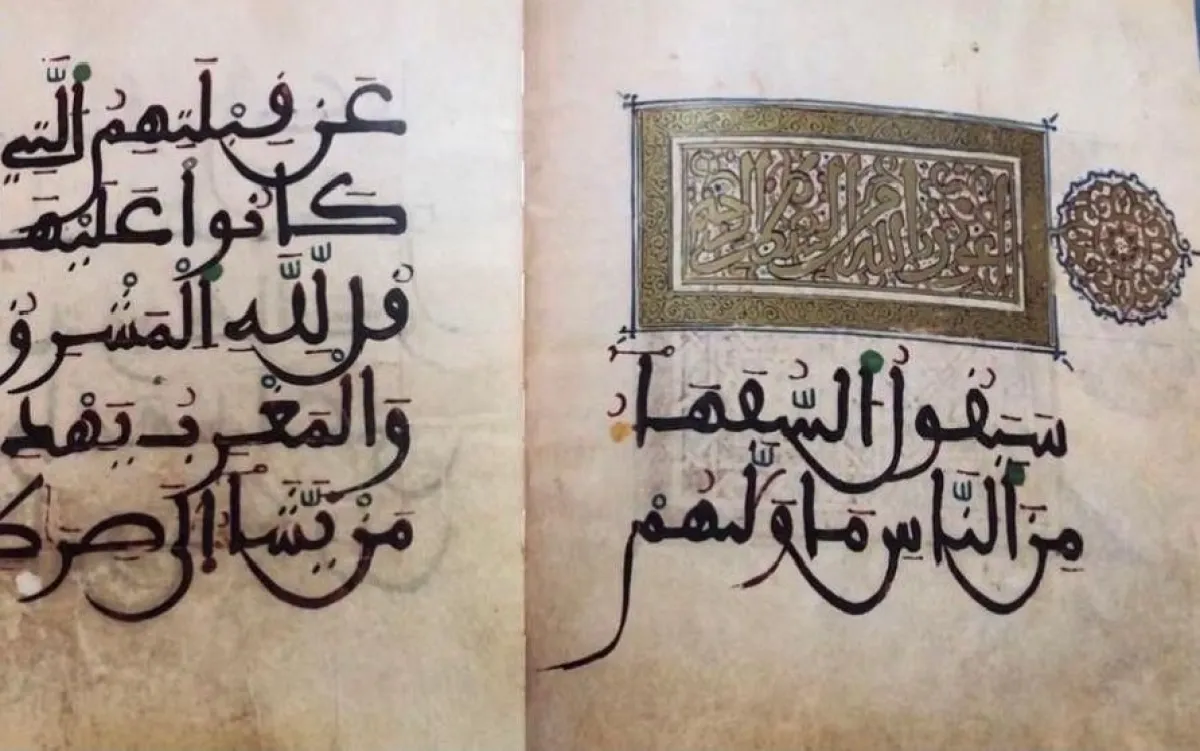 اعوذ بالله من الشيطان الرجيم
سَيَقُولُ اُ۬لسُّفَهَآءُ
مِنَ اَ۬لنَّاسِ مَا وَلّٰىهُمْ
عَن قِبْلَتِهِمُ اُ۬لَّتِي
كَانُواْ عَلَيْهَا
قُل لِّلهِ اِ۬لْمَشْرِقُ
وَالْمَغْرِبُ يَهْدِے
مَنْ يَّشَآءُ اِلَىٰ صِرَٰطٖ